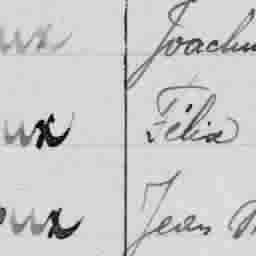 ux Joachi
ux Félix
ux Jean